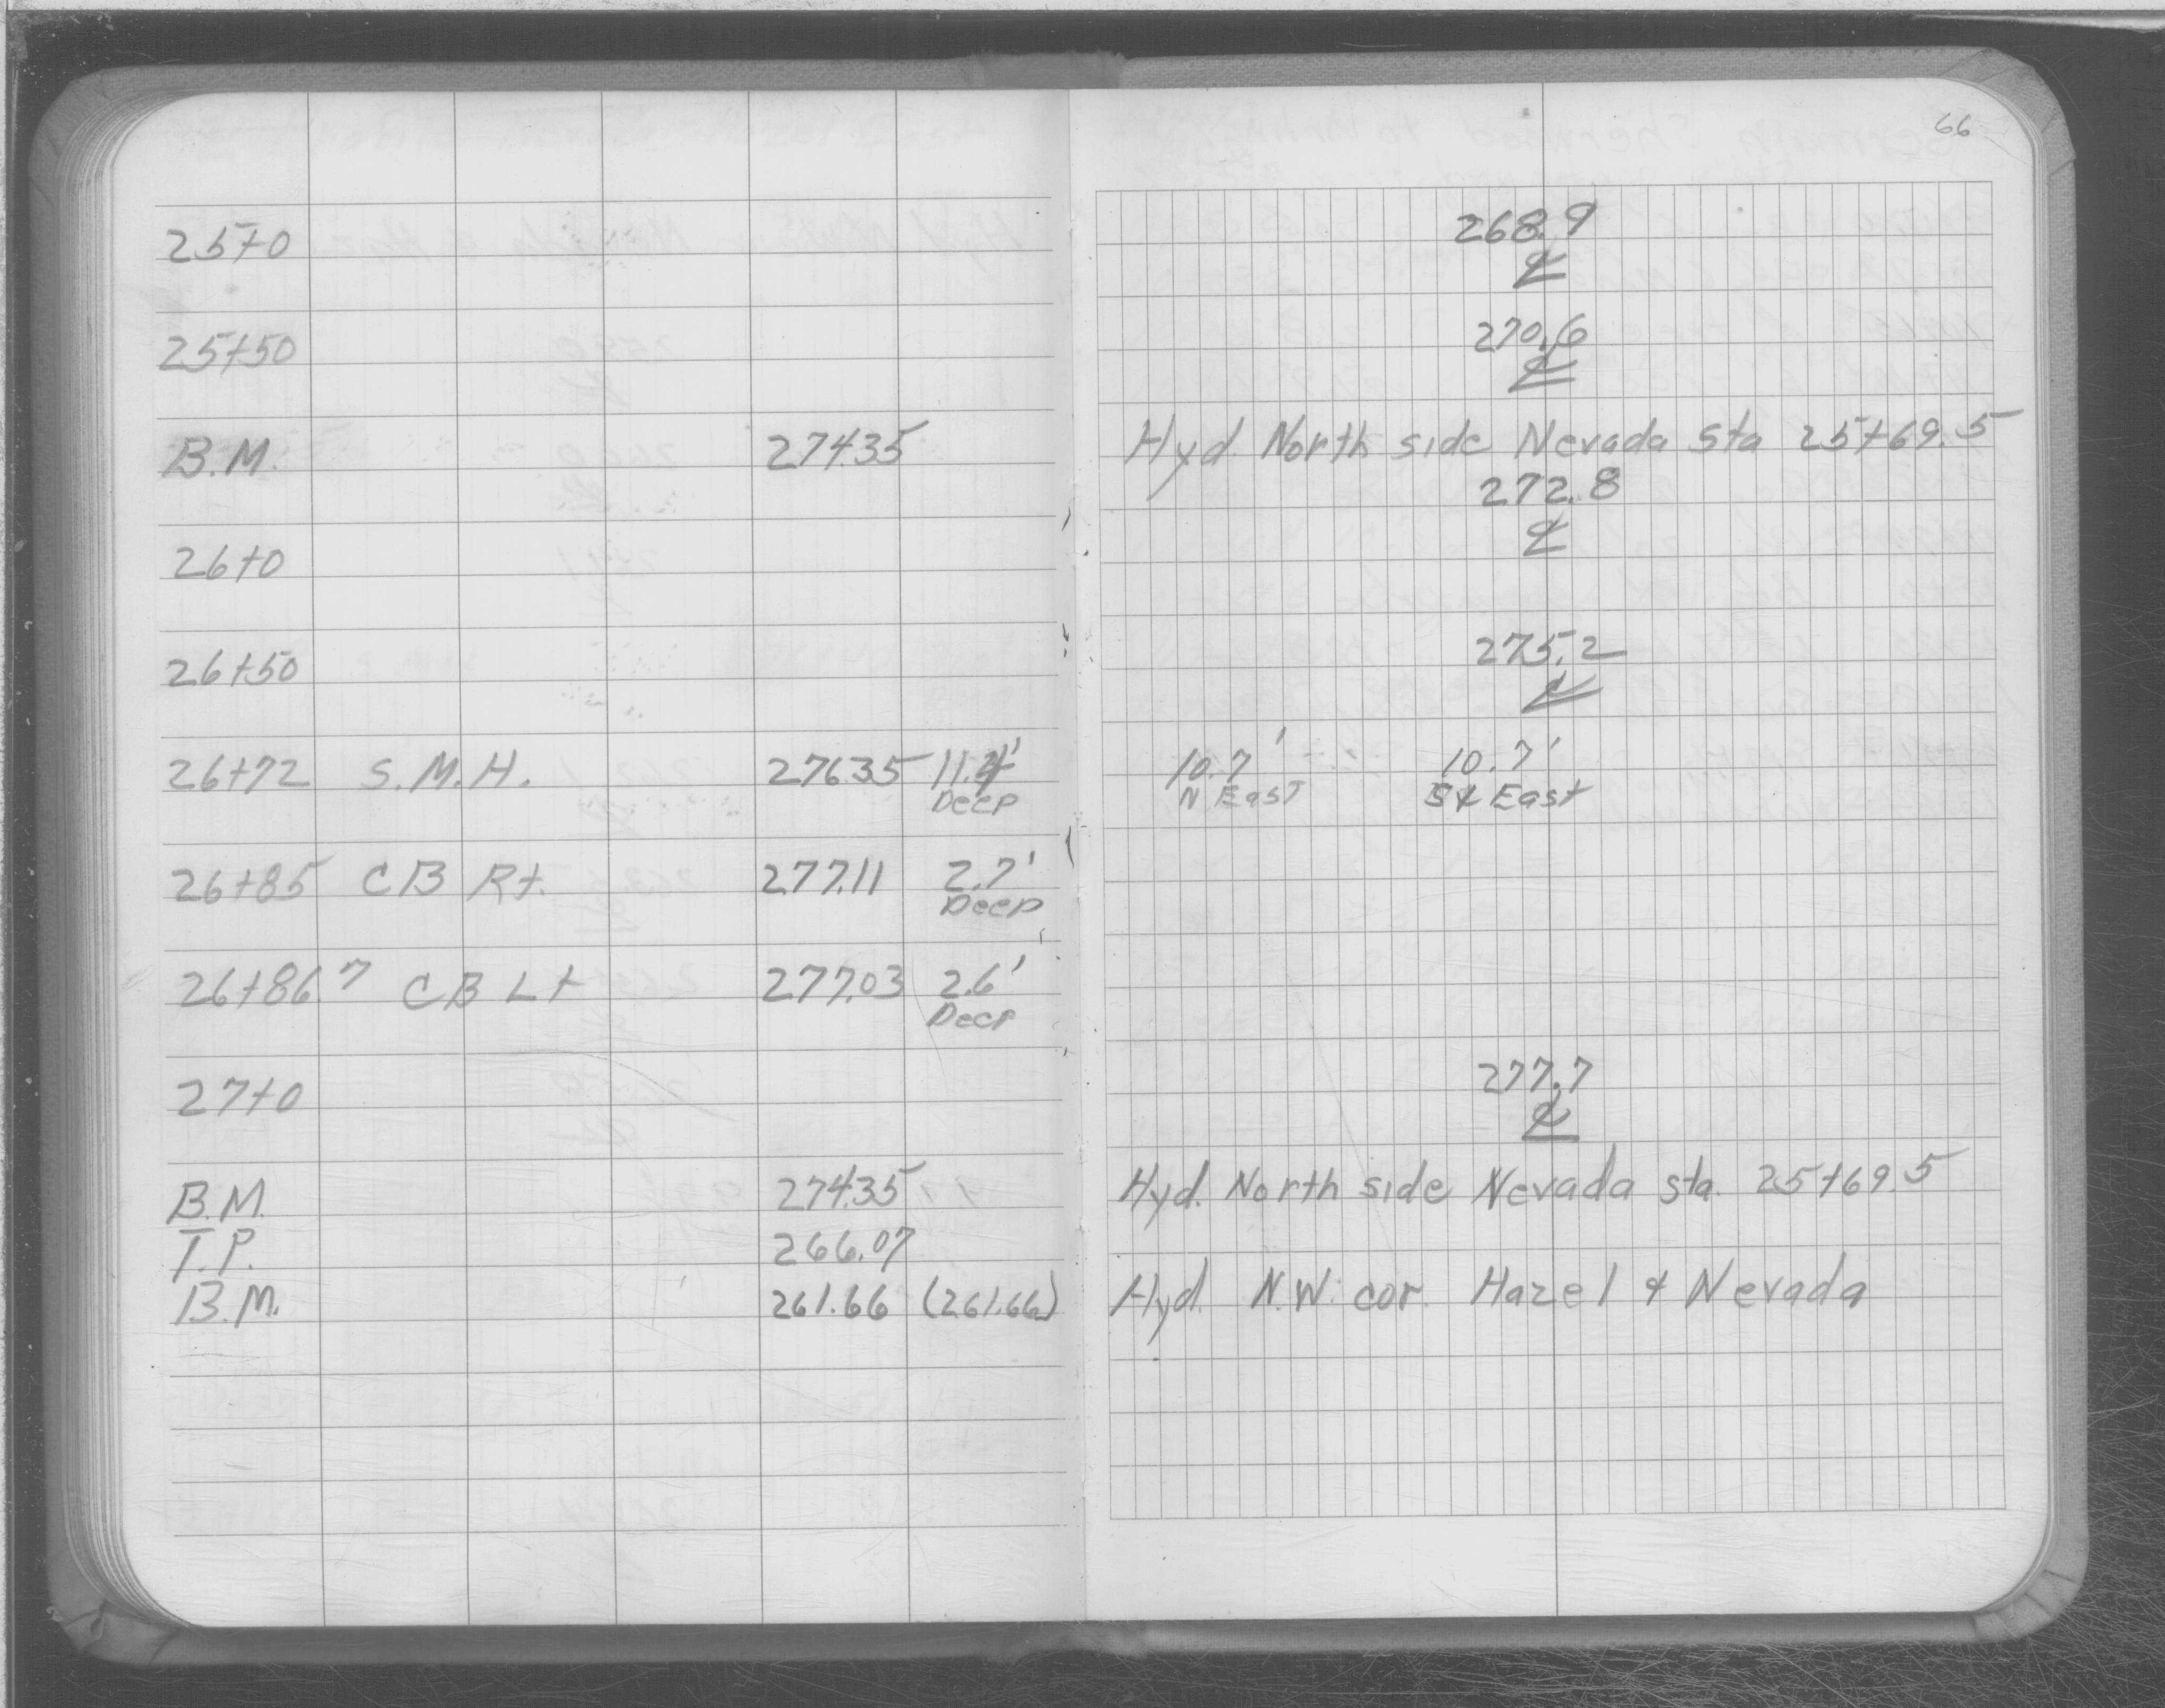 66
25+0 268.9
℄
25+50 270.6
℄
B.M. 274.35 Hyd. North side Nevada sta 25+69.5
272.8
℄
26+0
26+50 275.2
℄
26+72 S.M.H. 276.35 11.4' 10.7' 10.7'
Deep N East East
26+85 CB Rt. 277.11 2.7'
Deep
26+86.7 CB Lt 277.03 2.6'
Deep
27+0 277.7
℄
B.M. 274.35 Hyd. North side Nevada sta. 25+69.5
T.P. 266.07
B.M. 261.66 (261.66) Hyd. N.W. cor. Hazel & Nevada